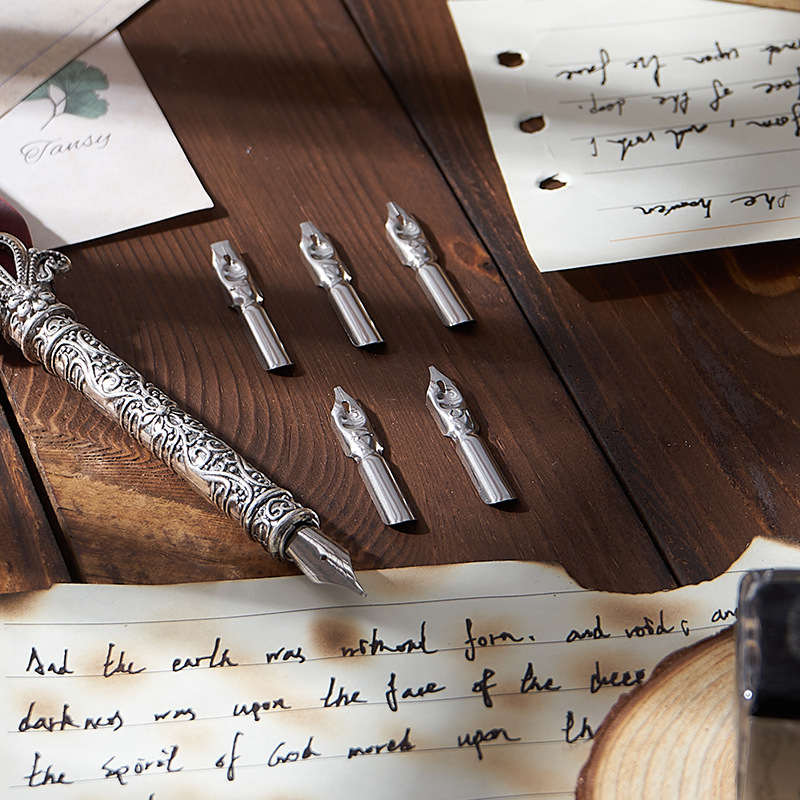 Tansy
And the earth was without form, and void; an
darkness was upon the face of the deep
the spirit of God moved upon th
and upon the face
face of the deep.
form, and void;
The heaven